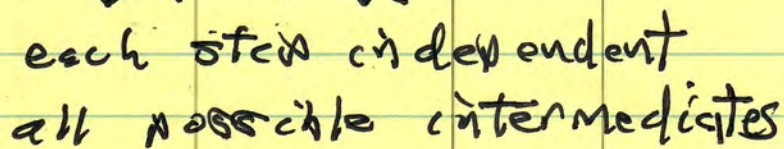 each step independent
all possible intermediates